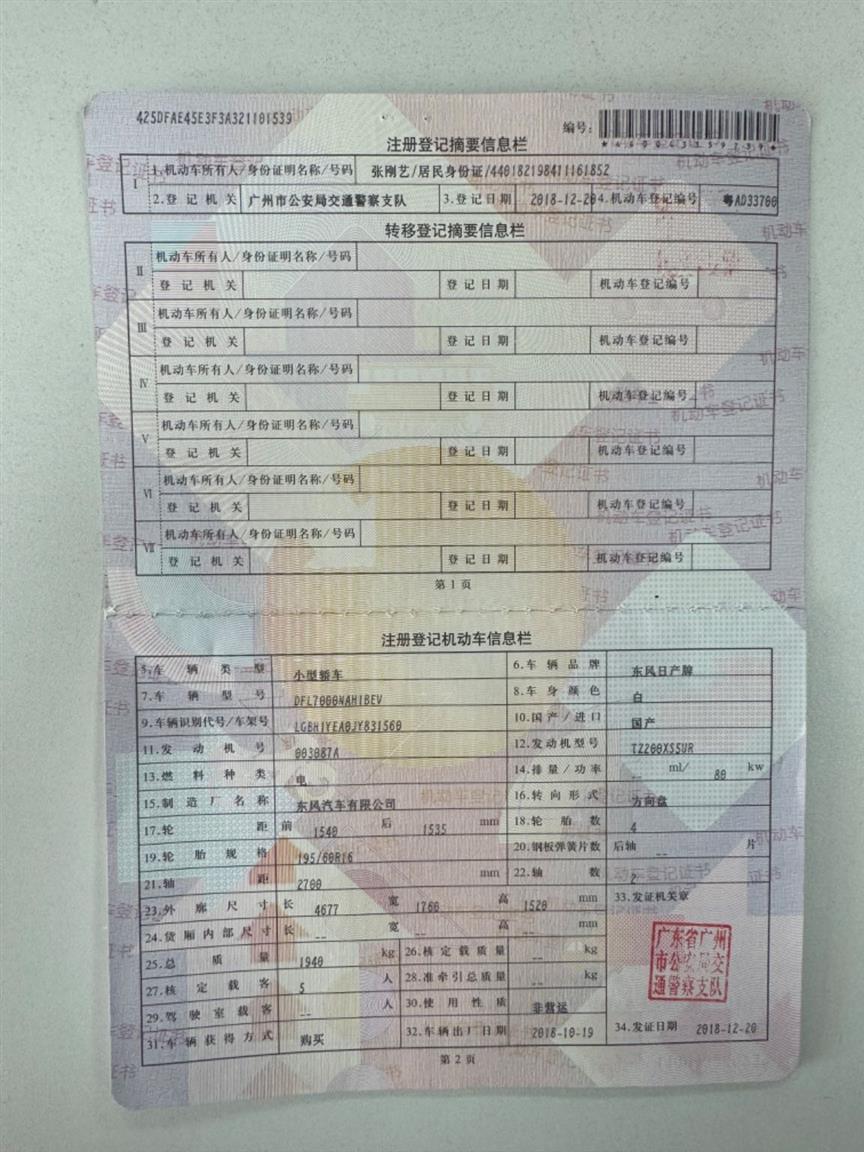 425DFAE45E3F3A321101539
编号:
注册登记摘要信息栏
Ⅰ 1.机动车所有人/身份证明名称/号码 张刚艺/居民身份证/440182198411161852
2.登记机关 广州市公安局交通警察支队 3.登记日期 2018-12-20 4.机动车登记编号 粤AD33700
转移登记摘要信息栏
Ⅱ 机动车所有人/身份证明名称/号码
登记机关 登记日期 机动车登记编号
Ⅲ 机动车所有人/身份证明名称/号码
登记机关 登记日期 机动车登记编号
Ⅳ 机动车所有人/身份证明名称/号码
登记机关 登记日期 机动车登记编号
Ⅴ 机动车所有人/身份证明名称/号码
登记机关 登记日期 机动车登记编号
Ⅵ 机动车所有人/身份证明名称/号码
登记机关 登记日期 机动车登记编号
Ⅶ 机动车所有人/身份证明名称/号码
登记机关 登记日期 机动车登记编号
第1页
注册登记机动车信息栏
5.车辆类型 小型轿车 6.车辆品牌 东风日产牌
7.车辆型号 DFL7000NAH1BEV 8.车身颜色 白
9.车辆识别代号/车架号 LGBH1YEA0JY831560 10.国产/进口 国产
11.发动机号 003087A 12.发动机型号 TZ200XS5UR
13.燃料种类 电 14.排量/功率 -- ml/ 80 kw
15.制造厂名称 东风汽车有限公司 16.转向形式 方向盘
17.轮距 前 1540 后 1535 mm 18.轮胎数 4
19.轮胎规格 195/60R16 20.钢板弹簧片数 后轴 -- 片
21.轴距 2700 mm 22.轴数 2
23.外廓尺寸 长 4677 宽 1760 高 1520 mm 33.发证机关章
24.货厢内部尺寸 长 -- 宽 -- 高 -- mm
25.总质量 1940 kg 26.核定载质量 -- kg
27.核定载客 5 人 28.准牵引总质量 -- kg
29.驾驶室载客 -- 人 30.使用性质 非营运
31.车辆获得方式 购买 32.车辆出厂日期 2018-10-19 34.发证日期 2018-12-20
广东省广州
市公安局交
通警察支队
第2页